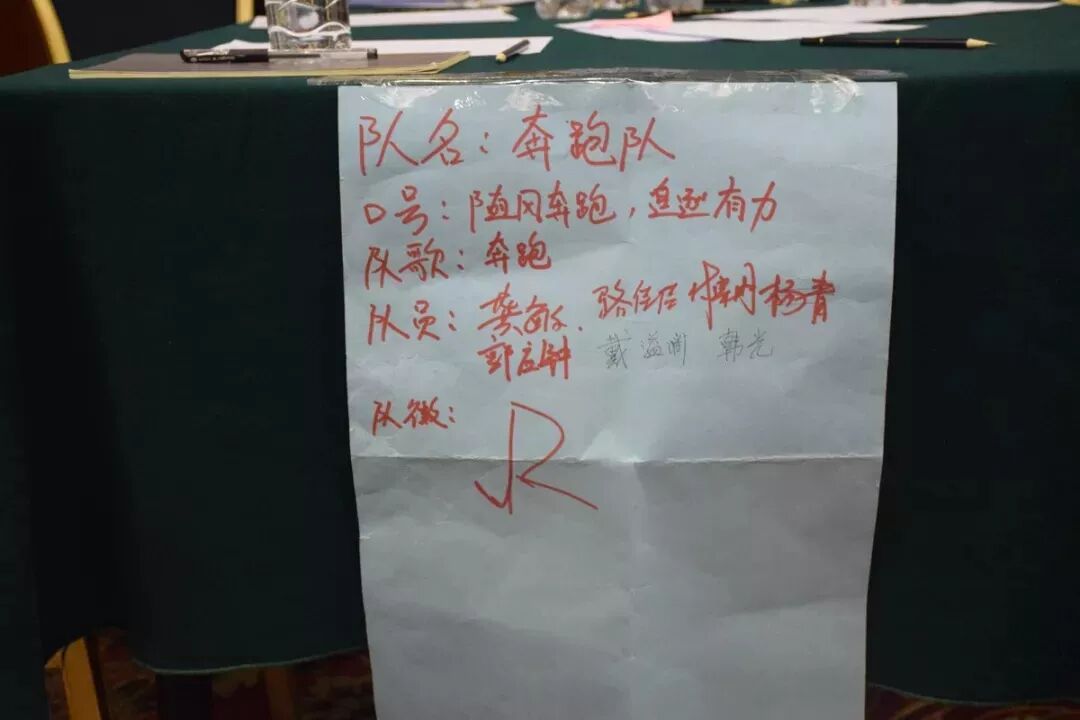 队名：奔跑队
口号：随风奔跑，逍遥有力
队歌：奔跑
队员：龚敏、路佳佳 杨青
郭应钟 戴溢闻 韩光
队徽：
R